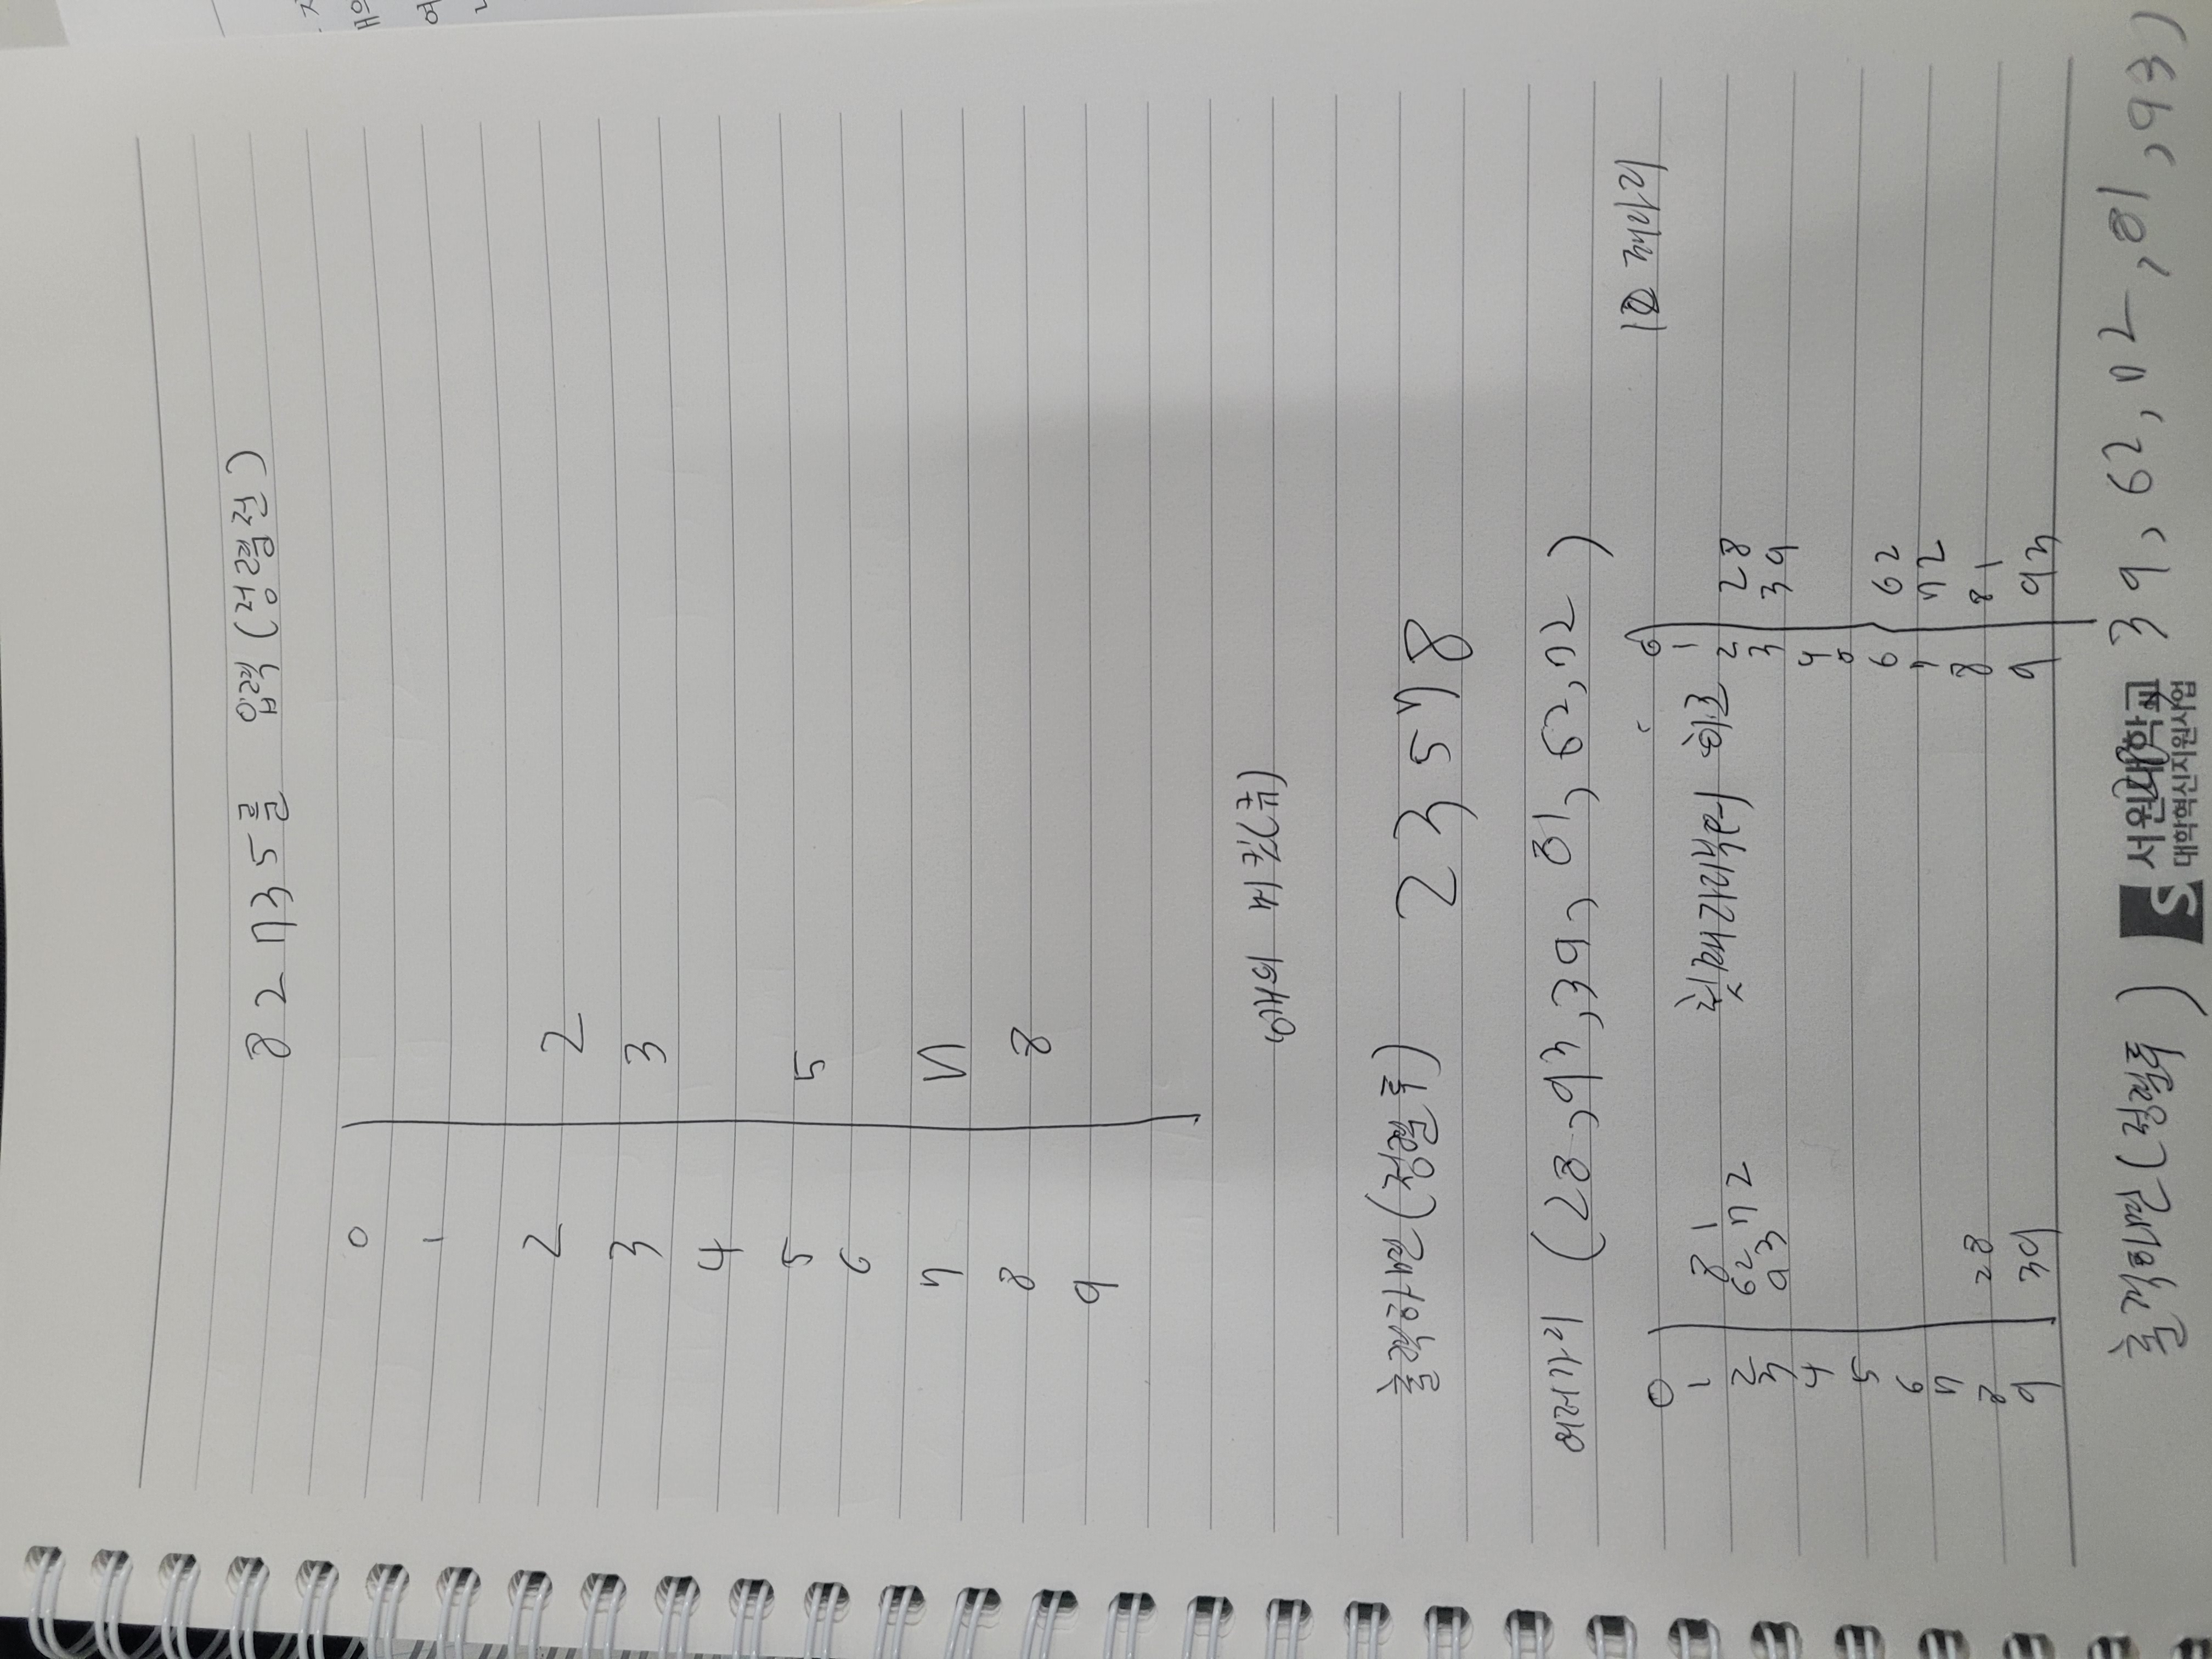 8 2 7 3 5를 입력(정렬전)
0
1
2 2
3 3
4
5 5
6
7 7
8 8
9
10개의 버킷(큐)
출력하면(정렬 후) 2 3 5 7 8
여러자리 (28, 93, 39, 81, 62, 72)
10 째자리
첫째자리부터
0
1 81
2 62 72
3 93
4
5
6
7
8 28
9 39
0
1
2 28
3 39
4
5
6 62
7 72
8 81
9 93
출력하면(정렬후) 28, 39, 62, 72, 81, 93)
서원대학교
대학혁신지원사업
여